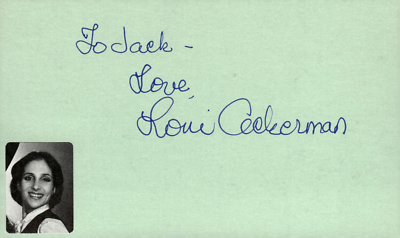 To Jack -
Love,
Loni Ackerman